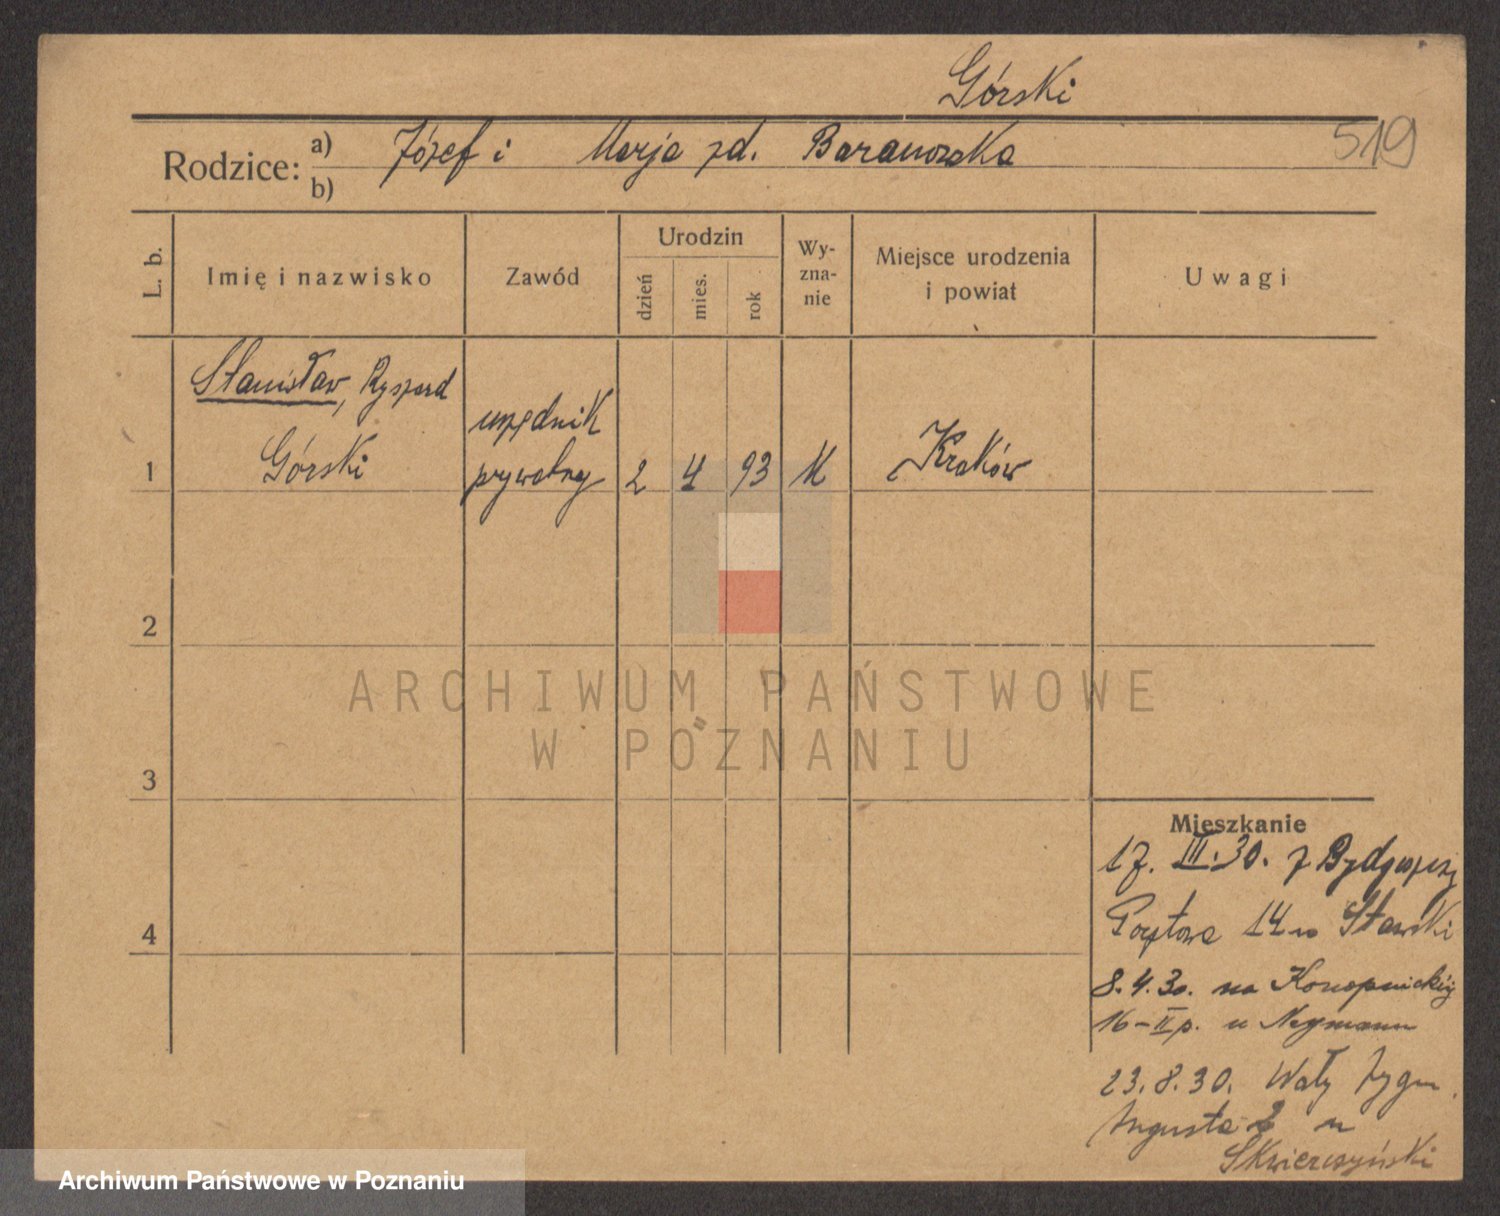 Górski
519
Rodzice: a) Józef i Marja zd. Baranowska
b)
L. b.
Imię i nazwisko
Zawód
Urodzin
dzień
mies.
rok
Wy-
zna-
nie
Miejsce urodzenia
i powiat
Uwagi
Stanisław, Ryszard
Górski
urzędnik
prywatny
1
2 4 93
Kraków
2
3
4
ARCHIWUM PAŃSTWOWE
W POZNANIU
Mieszkanie
17. III. 30. z Bydgoszczy
Pocztowa 14 u Stawski
8.4.30. na Konopnickiej
16-II p. u Neymann
23.8.30. Wały Zygm.
Augusta 2 u
Skwierczyński
Archiwum Państwowe w Poznaniu